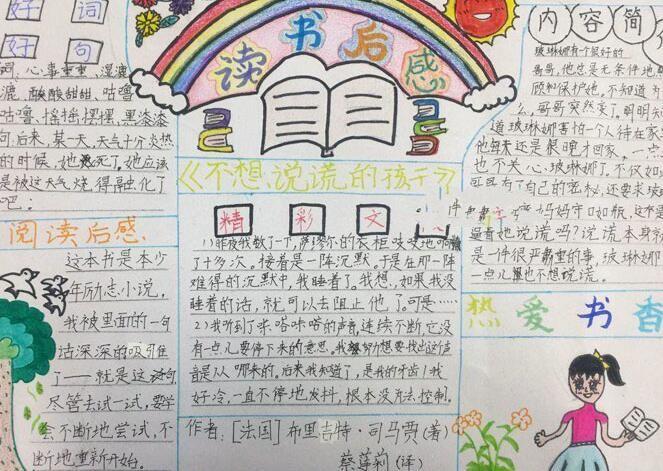 好 词
好 句
读书后感
词:心事重重、湿漉
漉、酸酸甜甜、咕噜
咕噜、摇摇摆摆、黑漆漆
句:后来,某一天,天气十分炎热
的时候,她死了。她应该
是被这天气烧得融化了
吧!
阅读后感
这本书是本少
年励志小说,
我被里面的一句
话深深的吸引住
了——就是这句
尽管去试一试,要学
会不断地尝试,不
断地重新开始。
《不想说谎的孩子》
精 彩 文
1)昨夜我数了一下,萨缪尔的衣柜吱吱地响
了十多次。接着是一阵沉默。于是在那一阵
难得的沉默中,我睡着了。我想,如果我没
睡着的话,就可以去阻止他了。可是……
2)我听到了咔嗒咔嗒的声音,连续不断,它没
有一点儿要停下来的意思。我努力想要找出这声
音是从哪来的,后来我知道了,是我的牙齿!我
好冷,一直不停地发抖,根本没方法控制。
作者:[法国]布里吉特·司马贾(著)
蔡莲莉(译)
内容简
玻琳娜有个挺好的
哥哥,他总是无条件地
顾和保护她,不知道为
么,哥哥突然变了,明明知
道玻琳娜害怕一个人待在家
他每天还是很晚才回家。一点
也不关心玻琳娜了。不仅如
可且有了自己的密秘,还要求玻
妈妈守口如瓶,这不
逼着她说谎吗?说谎本身就
是一件很严肃的事,玻琳娜
一点儿也不想说谎。
热爱书香